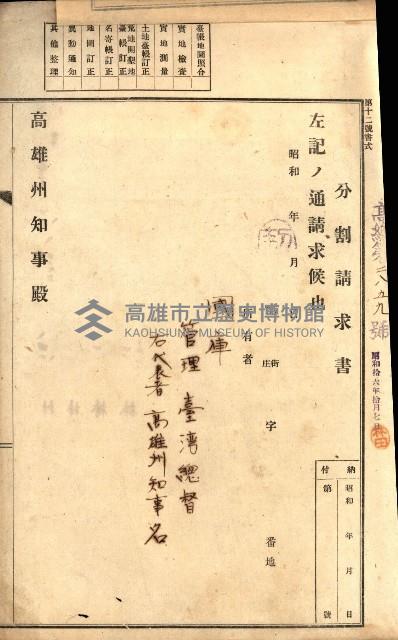 第十二號書式
二八五九號
昭和拾六年拾月七日
分割請求書
納付
昭和 年 月 日
第 號
左記ノ通請求候也
昭和 年 月 日
街庄 字 番地
所有者
國庫
管理 臺灣總督
右代表者 高雄州知事名
高雄州知事殿
臺帳地圖照合
實地檢查
實地測量
土地臺帳訂正
荒地開墾地臺帳訂正
名寄帳訂正
地圖訂正
異動通知
其他整理
高雄市立歷史博物館
KAOHSIUNG MUSEUM OF HISTORY